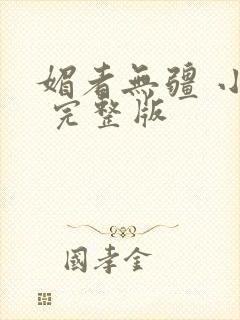 媚者無疆 小
完整版
國孝金